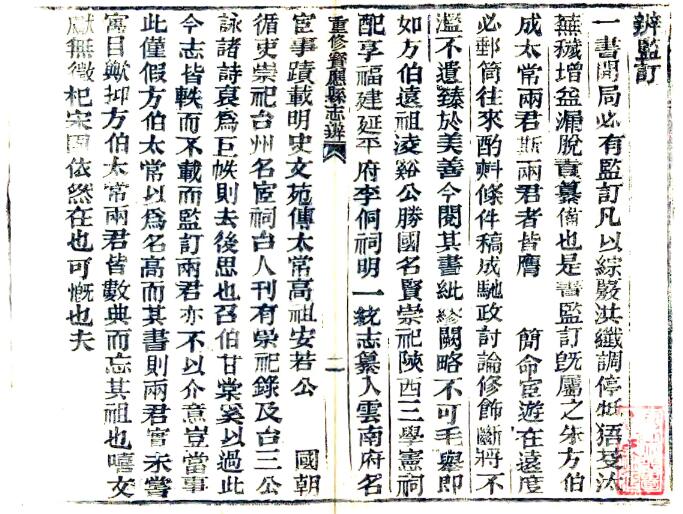 辨監訂
一書開局必有監訂凡以綜覈洪纖調停牴牾芟汰
蕪穢增益漏脫責纂備也是書監訂旣屬之朱方伯
成太常兩君斯兩君者皆膺 簡命宦遊在遠度
必郵筒往來酌斟條件稿成馳政討論修飾斷將不
濫不遺臻於美善今閱其書紕繆闕略不可毛舉即
如方伯遠祖凌谿公勝國名賢崇祀陝西三學憲祠
配享福建延平府李侗祠明一統志纂入雲南府名
重修寶應縣志辨 二
宦事蹟載明史文苑傳太常高祖安若公 國朝
循吏崇祀台州名宦祠台人刊有崇祀錄及台三公
詠諸詩裒爲巨帙則去後思也召伯甘棠奚以過此
今志皆軼而不載而監訂兩君亦不以介意豈當事
此僅假方伯太常以爲名高而其書則兩君實未嘗
寓目歟抑方伯太常兩君皆數典而忘其祖也嘻文
獻無徵杞宋固依然在也可慨也夫